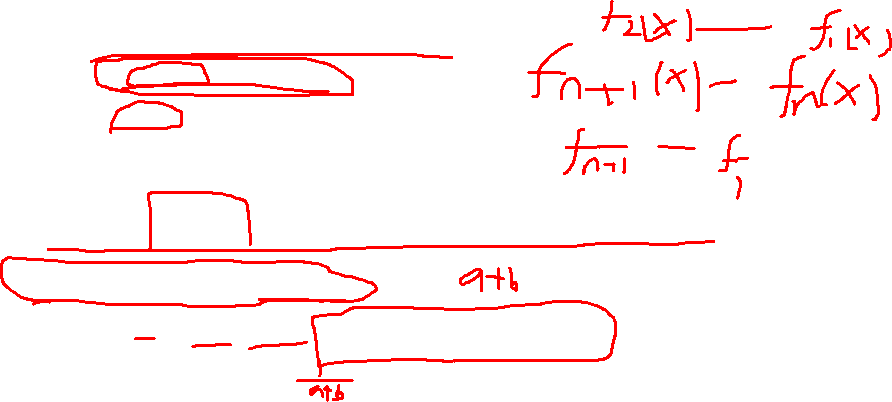 f₂(x) — f₁(x)
fₙ₊₁(x) — fₙ(x)
fₙ₊₁ — f₁
a+b
a+b